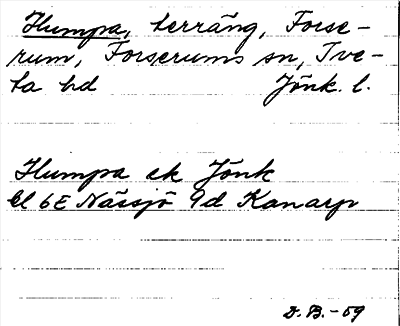 Humpa, terräng, Forse-
rum, Forserums sn, Tve-
ta hd Jönk. l.
Humpa ek Jönk
bl 6E Nässjö 9d Kanarp
D.B.-59